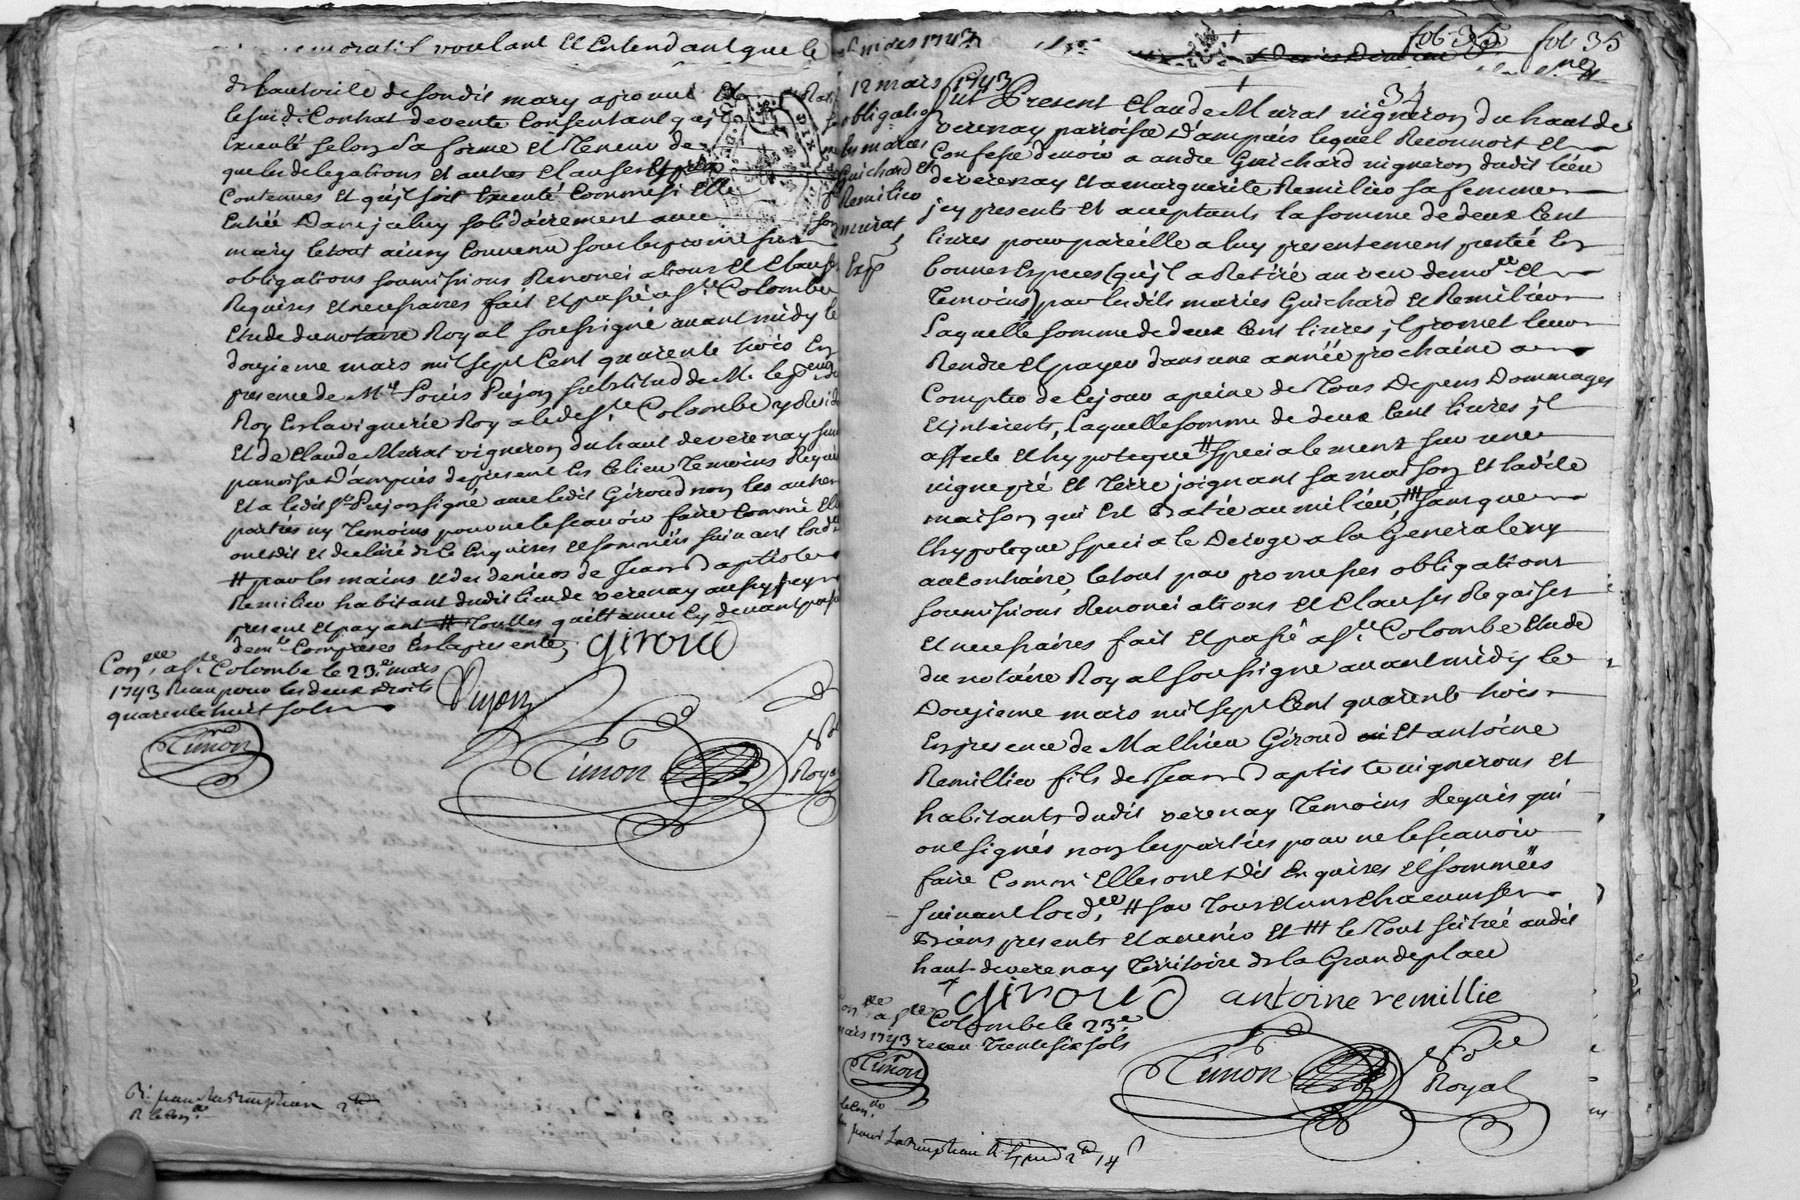 voulant et Entendant que le
de lautorité de sondit mary aprouve
le susd. Contrat de vente Consentant quil
Executé selon sa forme et Teneur de
que les delegations et autres Clauses
Contenues et quil soit Executé Comme si Elle
Entrée Dans jceluy solidairement avec
mary le tout ainsy Convenu sous les promesses
obligations soumissions Renonciations Et Clauses
Requises et necessaires fait et passé a ste Colombe
Etude du notaire Royal soussigné avant midy le
douzieme mars mil sept Cent quarente trois En
presence de Me Louis Pujon substitud de M. le
Roy En la viguerie Royale de ste Colombe y
Et de Claude Murat vigneron du haut de verenay
paroisse d'ampuis de present En Ce lieu Temoins
Et a ledit sr Pujon signé avec ledit Giroud non les autres
parties ny Temoins pour ne le scavoir faire Comme Elles
ont dit et declaré de Ce Enquises et sommées suivant lordce
# par les mains et des deniers de Jean Baptiste
Remilieu habitant dudit lieu de verenay aussy jcy
present et payant Toutes quittances Cy devant
Comprises En la presente
giroud
Con.lée a ste Colombe le 23e mars
1743 Recu pour les deux droits
quarente huit sols
Timon
Pujon
Timon
Royal
mars 1743
fol 35
fol 35
34
12 mars 1743
obligation
les maries
Guichard et
Remilieu
murat
Exp
fut Present Claude Murat vigneron du haut de
verenay parroisse d'ampuis lequel Reconnoit Et
Confesse devoir a andré Guichard vigneron dudit lieu
de verenay et a marguerite Remilieu sa femme
jcy presents et acceptants la somme de deux Cent
livres pour pareille a luy presentement pretée En
bonnes Especes (qu'jl a Retiré au veu de moy nore et
Temoins) par lesdits maries Guichard et Remilieu
Laquelle somme de deux Cent livres jl promet leur
Rendre et payer dans une année prochaine a
Compter de Cejour a peine de Tous Depens Dommages
Et jnterests, Laquelle somme de deux Cent livres jl
affecte et hypoteque # specialement sur une
vigne pré et Terre joignant sa maison et ladite
maison qui Est Batie au milieu, ### sans que
lhypoteque speciale Deroge a la Generale ny
au Contraire, le tout par promesses obligations
soumissions Renonciations Et Clauses Requises
et necessaires fait et passé a ste Colombe Etude
du notaire Royal soussigné avant midy le
Douzieme mars mil sept Cent quarente trois
En presence de Mathieu Giroud Et antoine
Remillieu fils de Jean Baptiste vignerons et
habitants dudit verenay Temoins Requis qui
ont signés non les parties pour ne le scavoir
faire Comme Elles ont dit Enquises et sommées
suivant lordce, # sur Tous et uns chacuns ses
Biens presents et avenir Et ### le Tout scitué audit
haut de verenay Territoire de la Grande place
giroud antoine remillie
Colombe le 23e
mars 1743 recu Trente six sols
Timon
Timon
nore
Royal